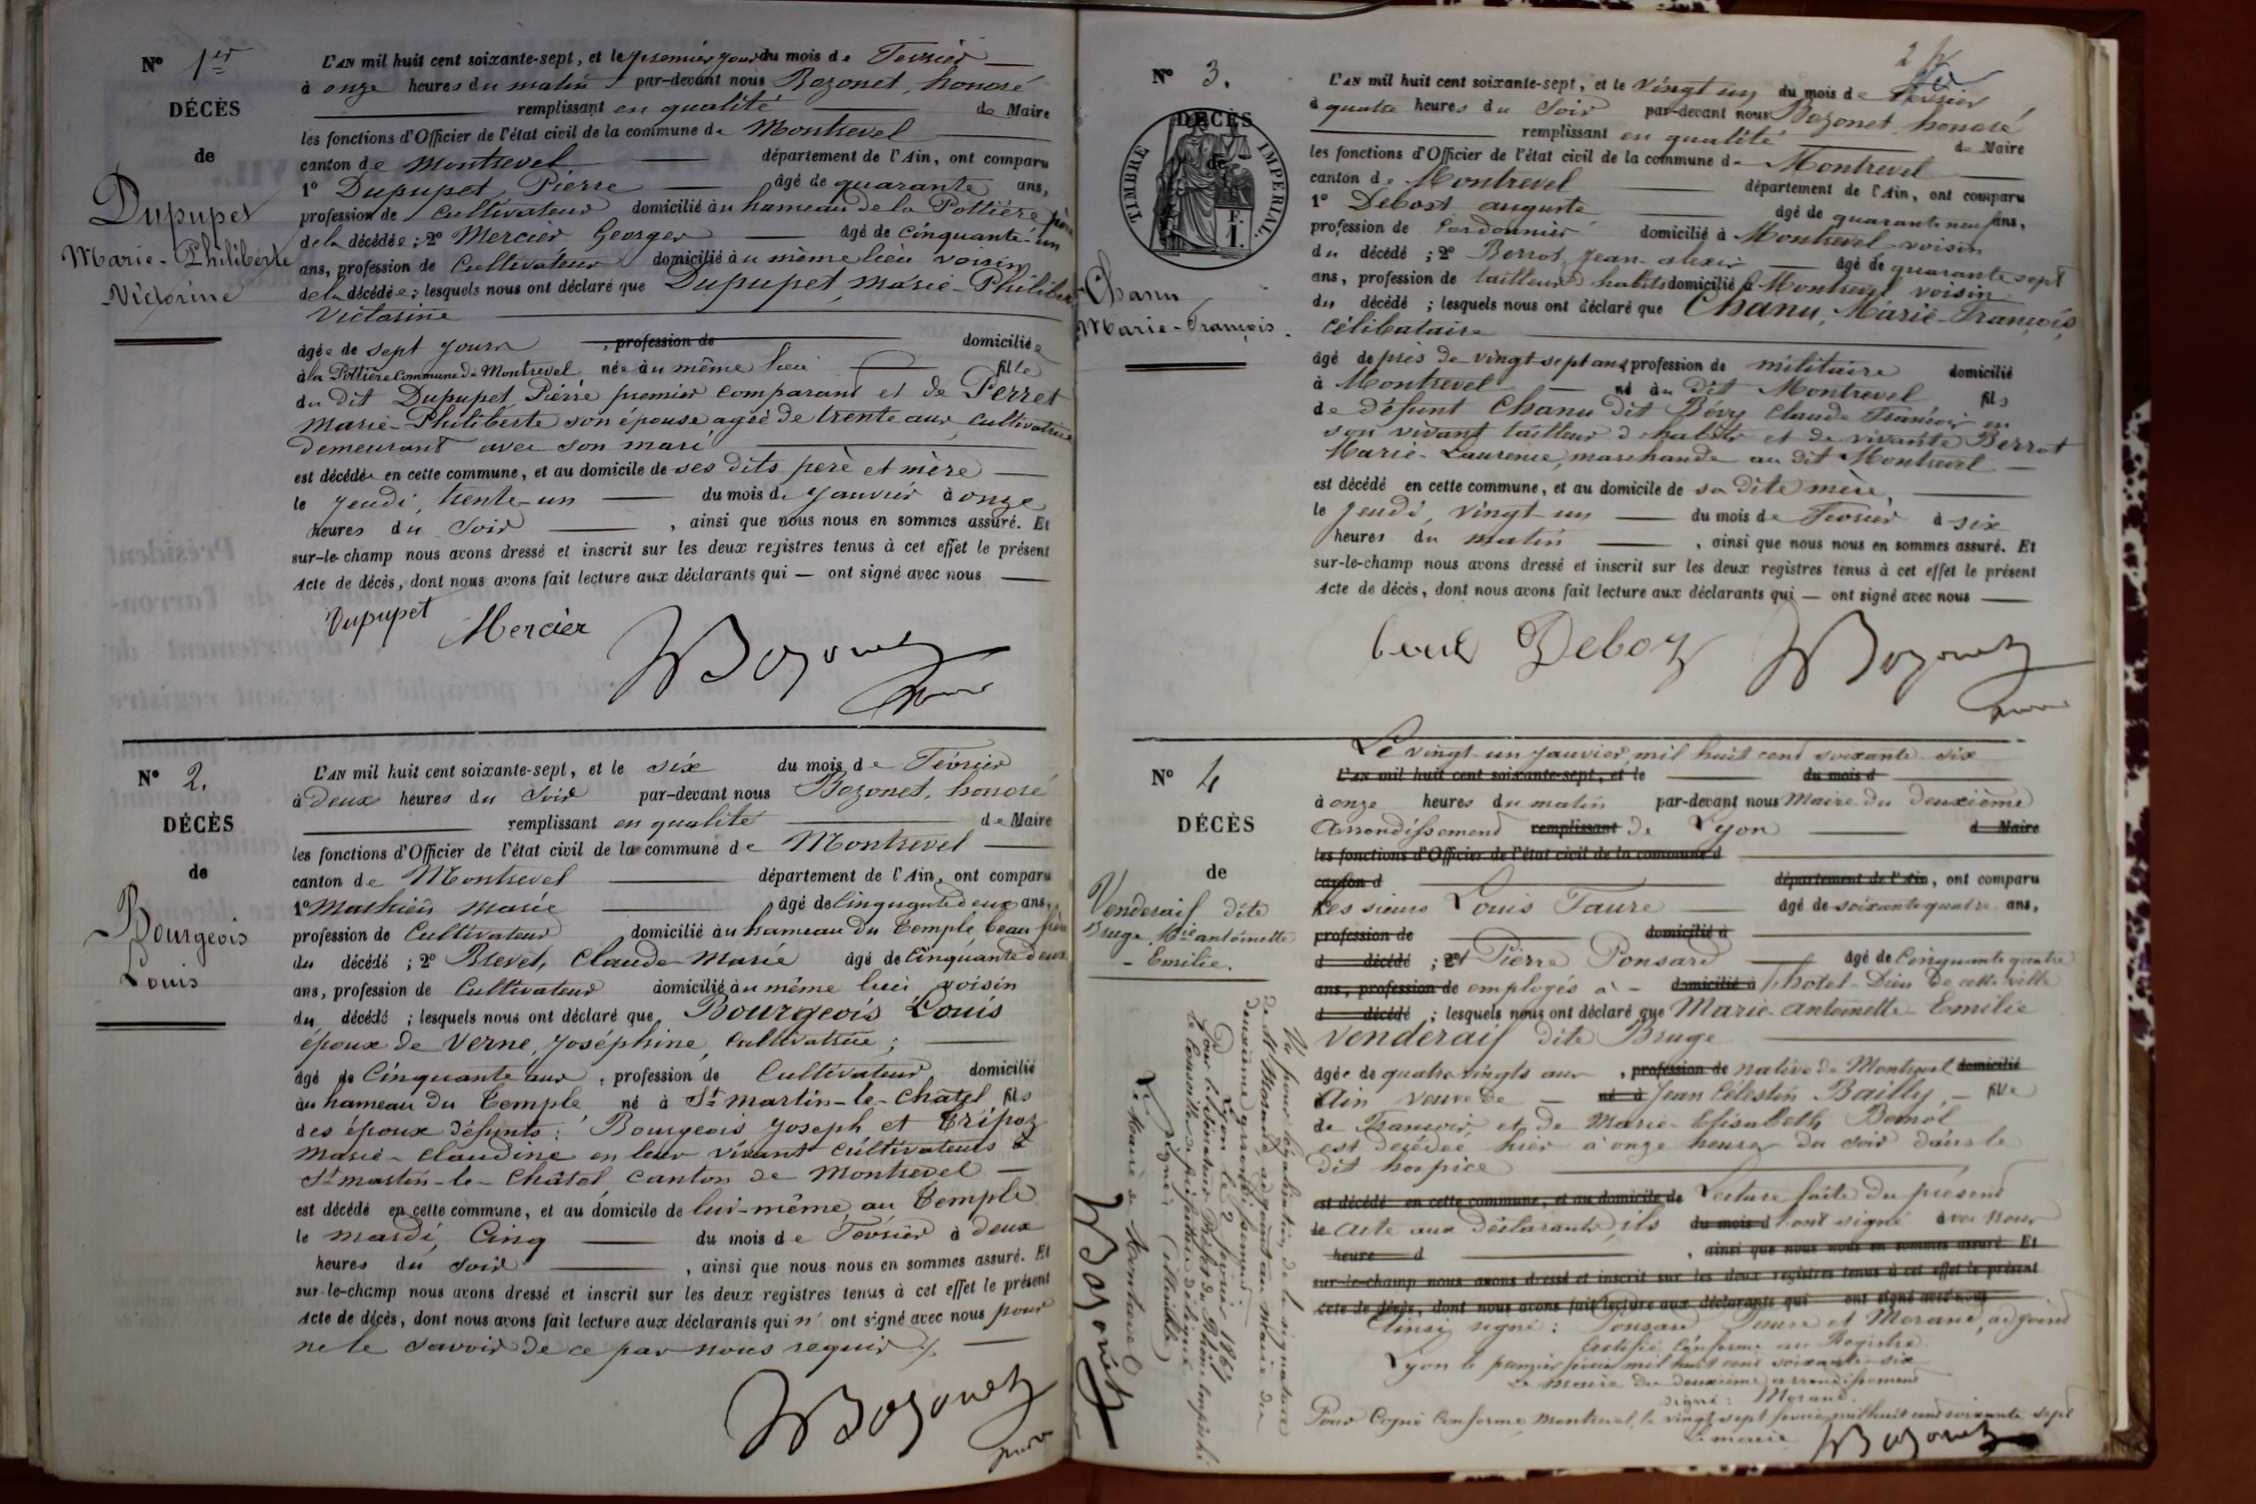 N° 1er
DÉCÈS
de
Dupupet
Marie-Philiberte
Victorine
L'AN mil huit cent soixante-sept, et le premier jour du mois de Février
à onze heures du matin par-devant nous Bozonet, honoré
remplissant en qualité de Maire
les fonctions d'Officier de l'état civil de la commune de Montrevel
canton de Montrevel département de l'Ain, ont comparu
1° Dupupet, Pierre âgé de quarante ans,
profession de Cultivateur domicilié au hameau de la Pottière père
de la décédée; 2° Mercier Georges âgé de Cinquante-un
ans, profession de Cultivateur domicilié au même lieu voisin
de la décédée; lesquels nous ont déclaré que Dupupet, Marie-Philiberte
Victorine
âgée de sept jours, profession de domiciliée
à la Pottière Commune de Montrevel née au même lieu fille
du dit Dupupet Pierre premier comparant et de Perret
Marie-Philiberte son épouse agée de trente ans, cultivatrice
demeurant avec son mari
est décédée en cette commune, et au domicile de ses dits père et mère
le jeudi, trente-un du mois de Janvier à onze
heures du Soir, ainsi que nous nous en sommes assuré. Et
sur-le-champ nous avons dressé et inscrit sur les deux registres tenus à cet effet le présent
Acte de décès, dont nous avons fait lecture aux déclarants qui — ont signé avec nous
Dupupet Mercier Bozonet
N° 2.
DÉCÈS
de
Bourgeois
Louis
L'AN mil huit cent soixante-sept, et le six du mois de Février
à deux heures du Soir par-devant nous Bozonet, honoré
remplissant en qualité de Maire
les fonctions d'Officier de l'état civil de la commune de Montrevel
canton de Montrevel département de l'Ain, ont comparu
1° Mathieu Marie âgé de Cinquante deux ans,
profession de Cultivateur domicilié au hameau du Temple beau frère
du décédé; 2° Brevet, Claude-Marie âgé de Cinquante deux
ans, profession de Cultivateur domicilié au même lieu voisin
du décédé; lesquels nous ont déclaré que Bourgeois Louis
époux de Verne, Joséphine, Cultivatrice;
âgé de Cinquante ans, profession de Cultivateur domicilié
au hameau du Temple né à St martin-le-Châtel fils
des époux défunts: Bourgeois Joseph et Tripoz
Marie-Claudine en leur vivant cultivateurs à
St martin-le-Châtel Canton de Montrevel
est décédé en cette commune, et au domicile de lui-même au Temple
le mardi, Cinq du mois de Février à deux
heures du Soir, ainsi que nous nous en sommes assuré. Et
sur-le-champ nous avons dressé et inscrit sur les deux registres tenus à cet effet le présent
Acte de décès, dont nous avons fait lecture aux déclarants qui n'ont signé avec nous pour
ne le savoir de ce par nous requis
Bozonet
2
N° 3.
DÉCÈS
de
TIMBRE IMPERIAL.
F.
I.
Chanu
Marie-François.
L'AN mil huit cent soixante-sept, et le vingt un du mois de Février
à quatre heures du Soir par-devant nous Bozonet, honoré
remplissant en qualité de Maire
les fonctions d'Officier de l'état civil de la commune de Montrevel
canton de Montrevel département de l'Ain, ont comparu
1° Debost auguste âgé de quarante neuf ans,
profession de Cordonnier domicilié à Montrevel voisin
du décédé; 2° Berrot, Jean-alexis âgé de quarante sept
ans, profession de tailleur d'habits domicilié à Montrevel voisin
du décédé; lesquels nous ont déclaré que Chanu, Marie-François,
célibataire
âgé de près de vingt-sept ans profession de militaire domicilié
à Montrevel né au dit Montrevel fils
de défunt Chanu dit Bévy Claude François en
son vivant tailleur d'habits et de vivante Berrot
Marie-Laurence, marchande au dit Montrevel
est décédé en cette commune, et au domicile de sa dite mère,
le Jeudi, vingt-un du mois de Février à six
heures du matin, ainsi que nous nous en sommes assuré. Et
sur-le-champ nous avons dressé et inscrit sur les deux registres tenus à cet effet le présent
Acte de décès, dont nous avons fait lecture aux déclarants qui — ont signé avec nous
Deboz Bozonet
N° 4
DÉCÈS
de
Venderaif dite
Bruge, Mie antoinette
- Emilie.
Le vingt-un janvier mil huit cent soixante-six
L'AN mil huit cent soixante-sept, et le du mois d
à onze heures du matin par-devant nous Maire du deuxième
Arrondissement remplissant de Lyon d Maire
les fonctions d'Officier de l'état civil de la commune d
canton d département de l'Ain, ont comparu
Les sieurs Louis Faure âgé de soixante quatre ans,
profession de domicilié à
d décédé; 2° et Pierre Ponsard âgé de Cinquante quatre
ans, profession de employés à - domicilié à l'hotel-Dieu de cette ville
d décédé; lesquels nous ont déclaré que Marie-Antoinette-Emilie
Venderaif dite Bruge
âgée de quatre vingts ans, profession de native de Montrevel domicilié
Ain veuve de né à Jean Célestin Bailly, fille
de François et de Marie-Elisabeth
est décédée hier à onze heures du soir dans le
dit hospice
est décédé en cette commune, et au domicile de Lecture faite du présent
le acte aux déclarants, ils du mois d ont signé avec nous
heure d, ainsi que nous nous en sommes assuré. Et
sur-le-champ nous avons dressé et inscrit sur les deux registres tenus à cet effet le présent
Acte de décès, dont nous avons fait lecture aux déclarants qui ont signé avec nous
Ainsi signé: Ponsard Faure et Morand, adjoint
Certifié Conforme au Registre
Lyon le premier février mil huit cent soixante-six
Le maire du deuxième arrondissement
signé: Morand.
Pour Copie Conforme, Montrevel, le vingt-sept février mil huit cent soixante sept
Le maire
Bozonet
Vu pour légalisation de la signature
de Mr Morand, adjoint au Maire du
deuxième arrondissement
Lyon le 2 février 1867
Pour le Sénateur Préfet du Rhône empêché
le Conseiller de préfecture délégué
Signé:
Le Maire de Montrevel
Bozonet